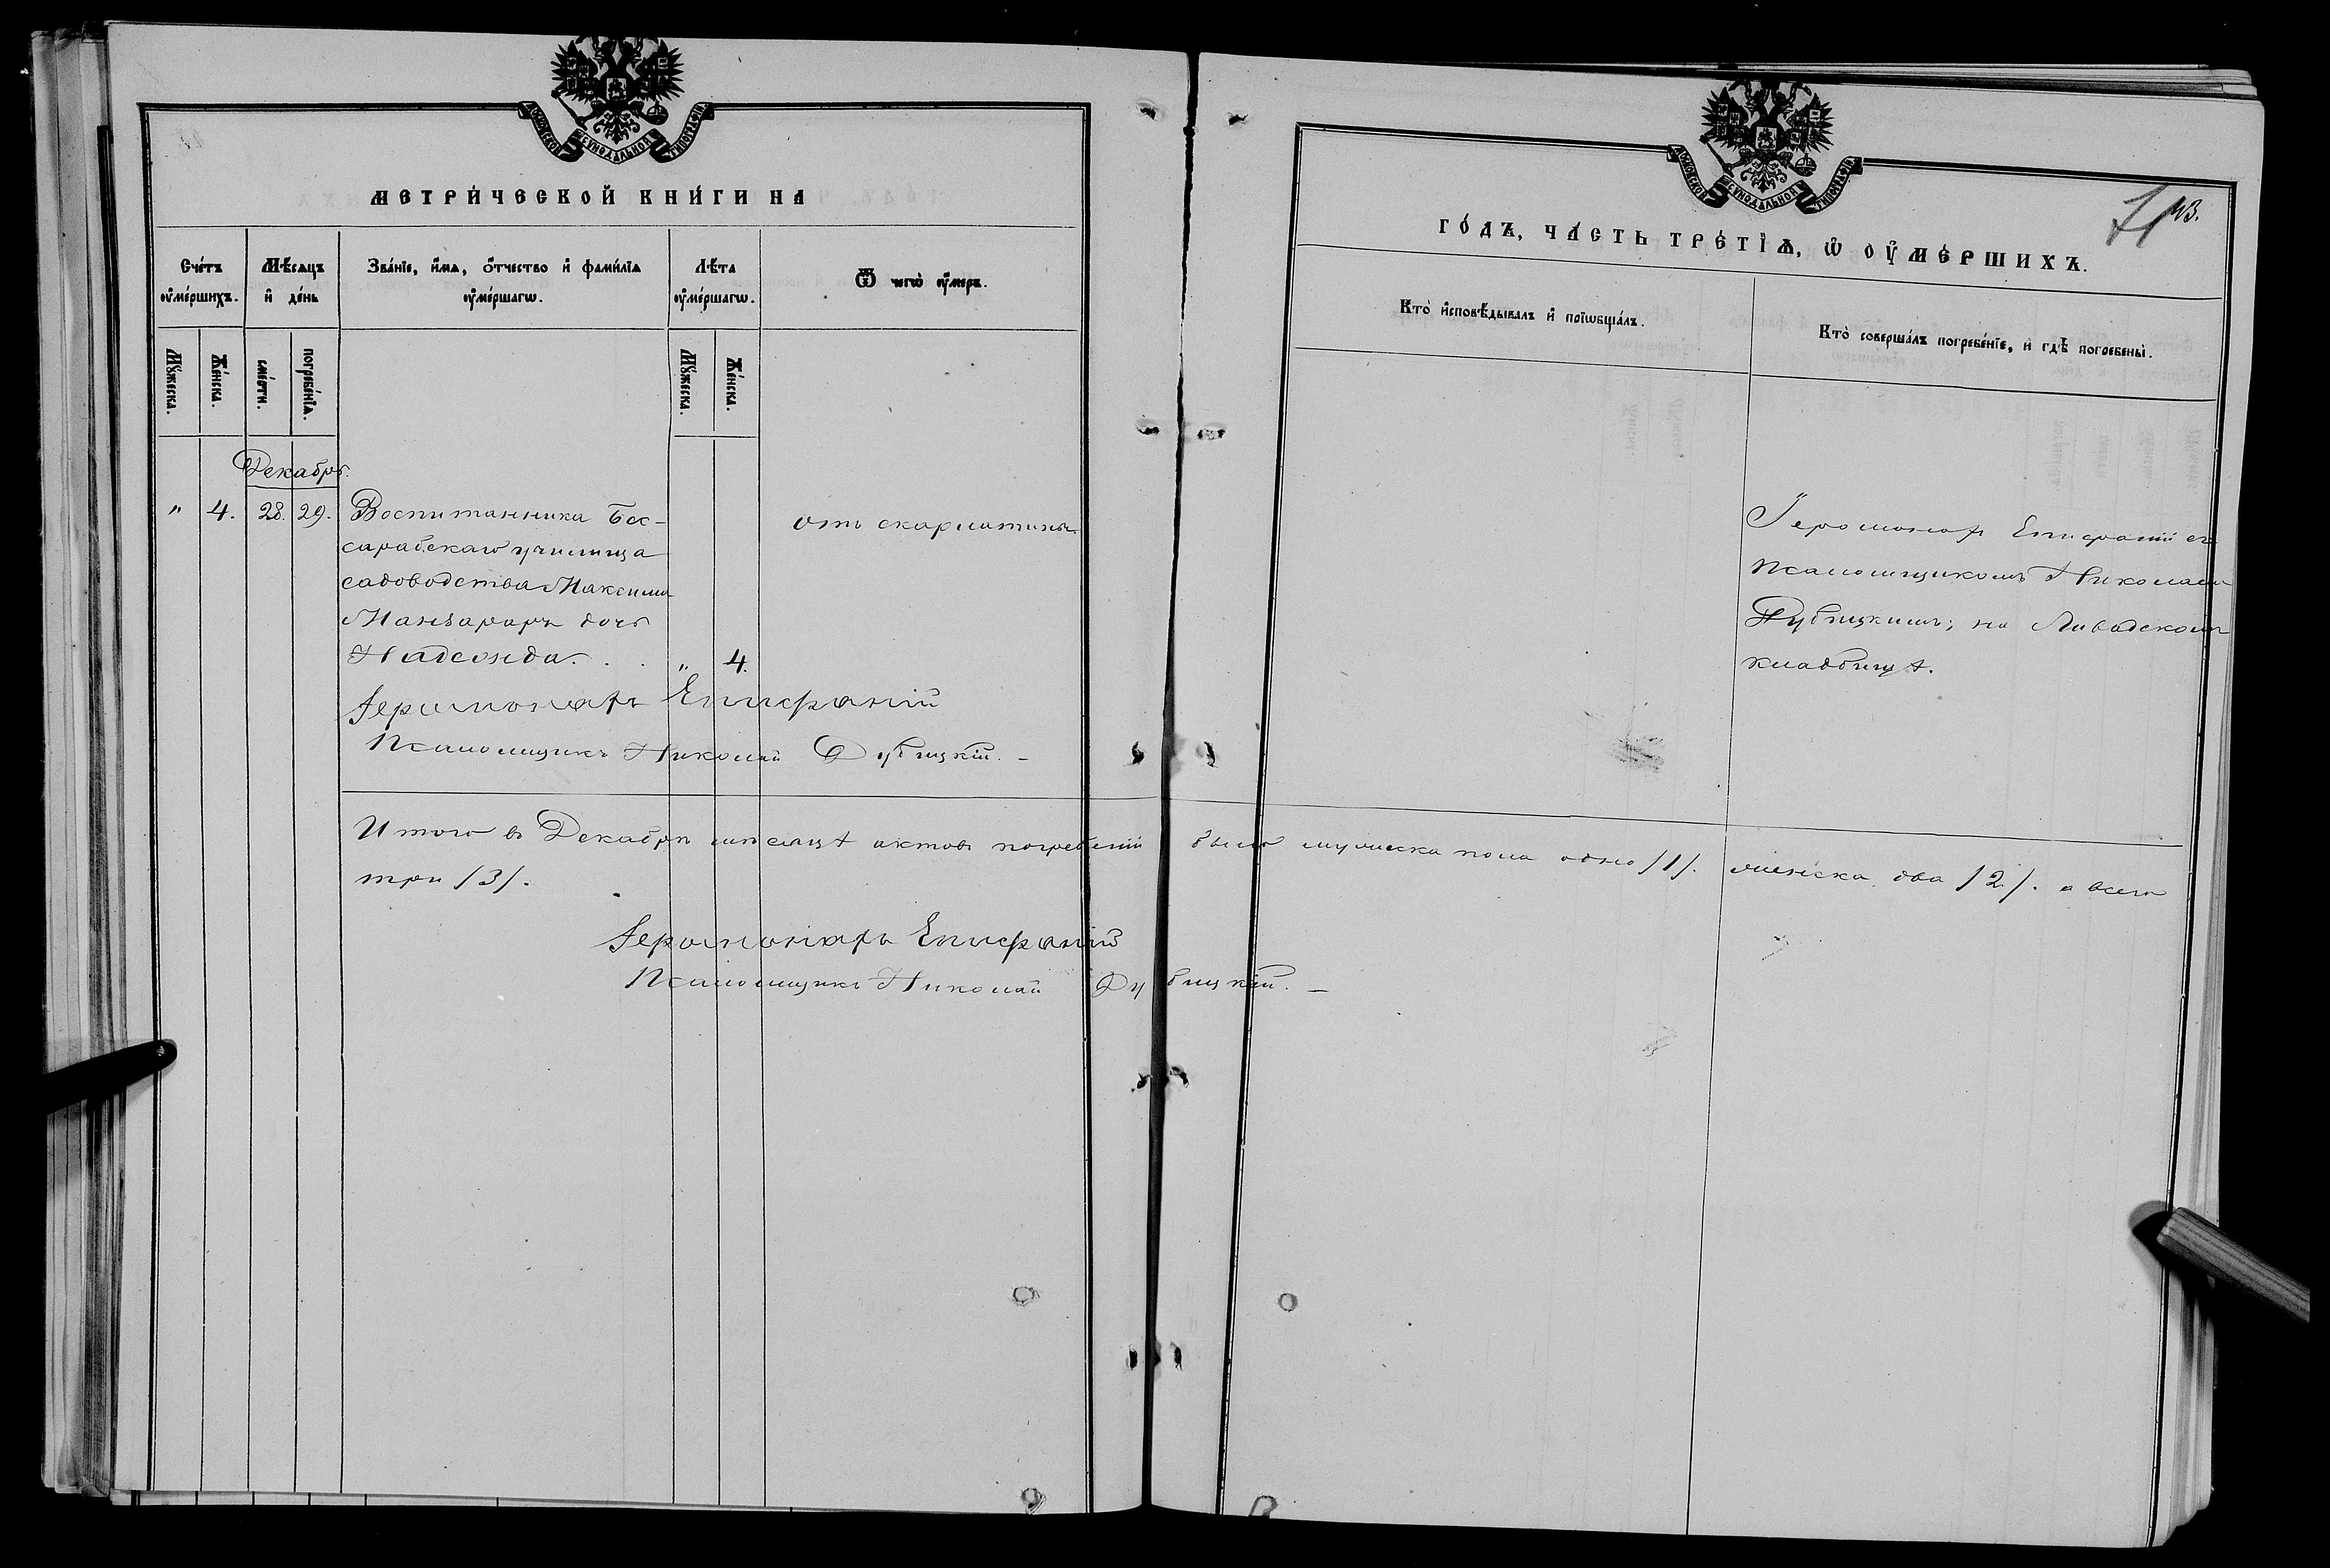 МОСКОВСКОЙ СѴНОДАЛЬНОЙ ТИПОГРАФІИ
МЕТРИ́ЧЕСКОЙ КНИ́ГИ НА
Сче́тъ ᲂу҆ме́ршихъ.
Мѣ́сяцъ и҆ де́нь
Зва́нїе, и҆́мѧ, ѻ҆́тчество и҆ фами́лїѧ ᲂу҆ме́ршагѡ.
Лѣ́та ᲂу҆ме́ршагѡ.
Ѿ чегѡ̀ ᲂу҆́меръ.
Мꙋ́жеска.
Же́нска.
сме́рти.
погребе́нїѧ.
Мꙋ́жеска.
Же́нска.
Декабрь.
" 4. 28. 29. Воспитанника Бес-
сарабскаго училища
садоводства Максима
дочь
Надежда. . . " 4.
отъ скарлатины.
Іеромонахъ Епифаній
Псаломщикъ Николай Дубицкій. –
Итого въ Декабрѣ мѣсяцѣ актовъ погребеній было мужеска пола одно /1/. женска два /2/. а всего
три /3/.
Іеромонахъ Епифаній
Псаломщикъ Николай Дубицкій. –
МОСКОВСКОЙ СѴНОДАЛЬНОЙ ТИПОГРАФІИ
43.
71
ГО́ДЪ, ЧА́СТЬ ТРЕ́ТЇѦ, Ѡ҆ ОУ҆МЕ́РШИХЪ.
Кто̀ и҆сповѣ́дывалъ и҆ прїѡбща́лъ.
Кто̀ соверша́лъ погребе́нїе, и҆ гдѣ̀ погребены̀.
Іеромонахъ Епифаній съ
псаломщикомъ Николаемъ
Дубицкимъ; на
кладбищѣ.